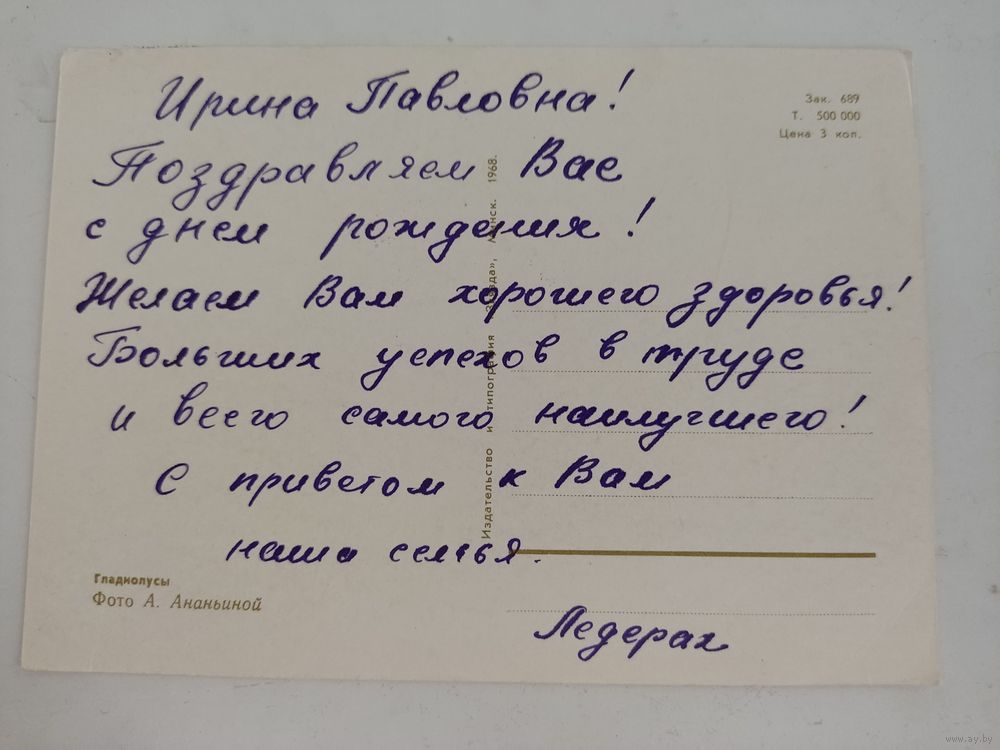 Ирина Павловна!
Поздравляем Вас
с днем рождения!
Желаем Вам хорошего здоровья!
Больших успехов в труде
и всего самого наилучшего!
С приветом к Вам
наша семья.
Ледерах
Зак. 689
Т. 500 000
Цена 3 коп.
Издательство и типография «Звязда», Минск. 1968.
Гладиолусы
Фото А. Ананьиной
www.ay.by